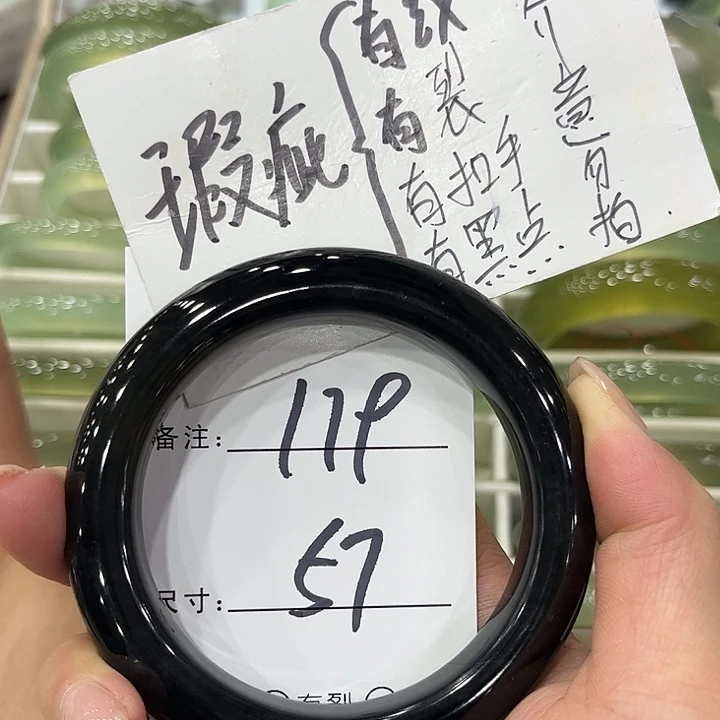 瑕疵
有纹
有裂
有扣手
有黑点.
介意勿拍.
备注: 119
尺寸: 57
有裂